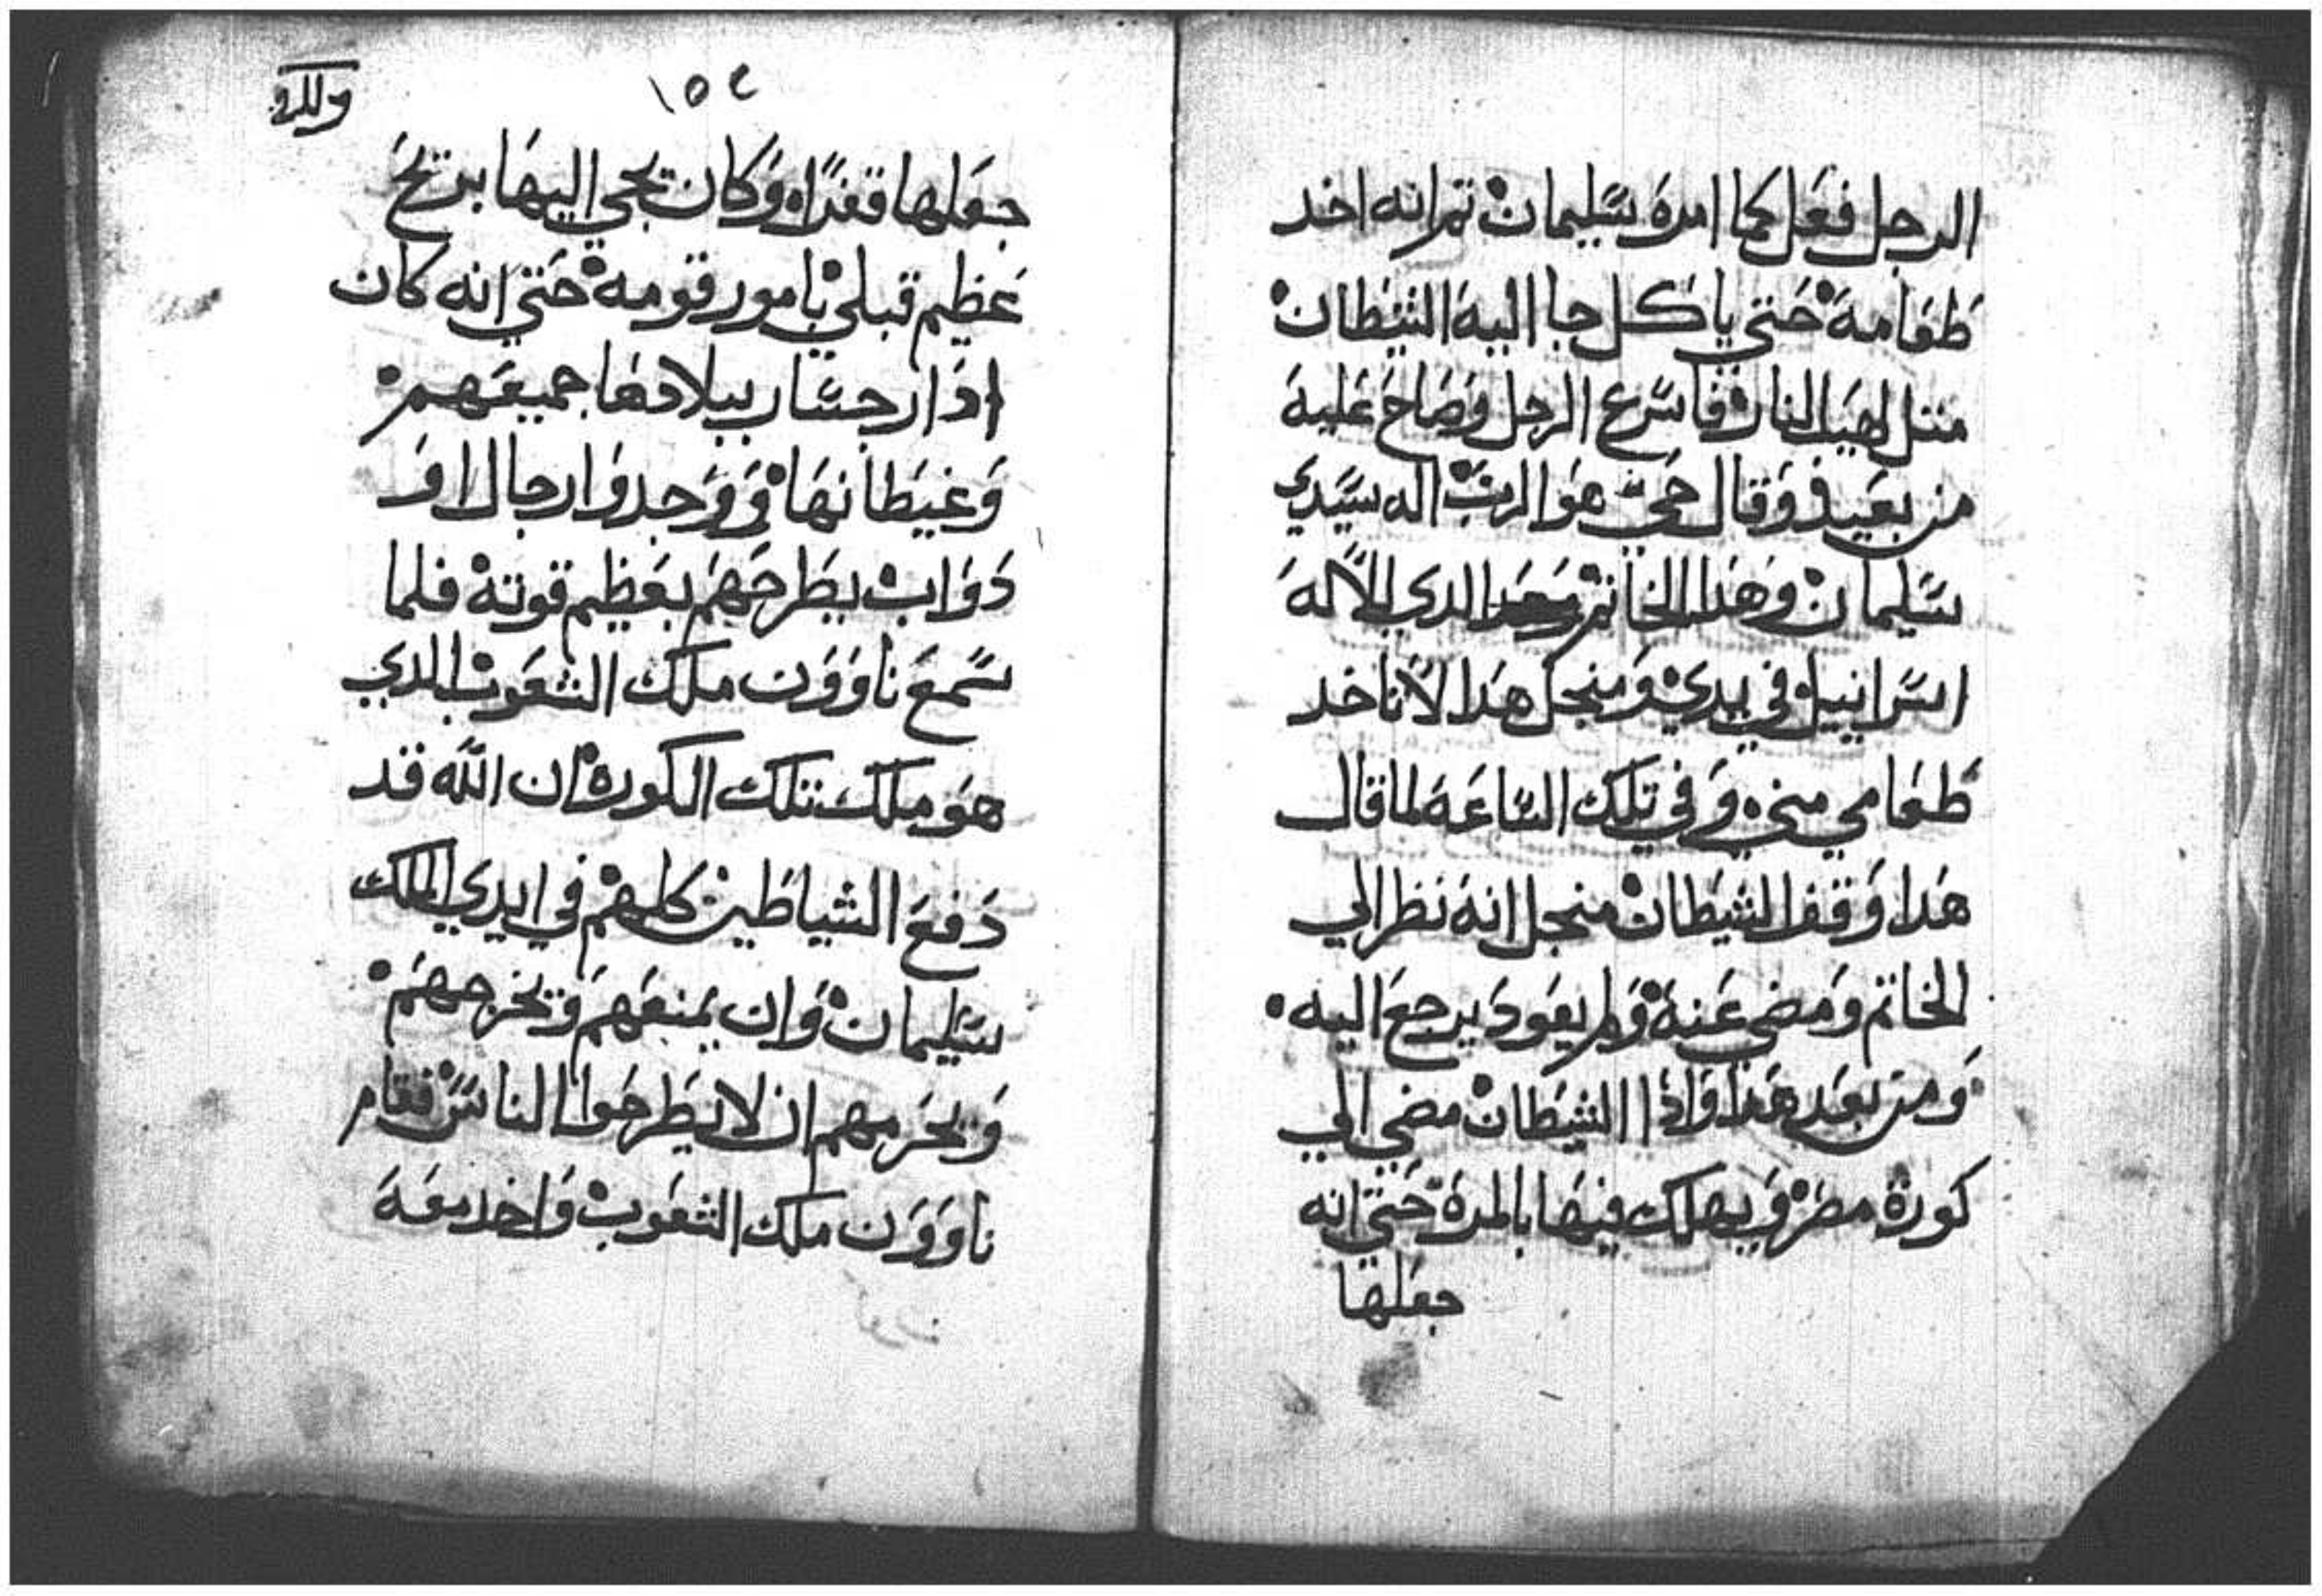 الرجل فعل كما امره سليمان تم انه اخد
طعامه حتي ياكل جا اليه الشيطان
متل لهيب النار فاسرع الرجل وصاح عليه
من بعيد وقال حي هو الرب اله سيدي
سليمان وهدا الخاتم الدي للاله
اسرانييل في يدي ومنجل هدا لا تاخد
طعامي مني وفي تلك الساعه لما قال
هدا وقف الشيطان منجل انه نظر الي
الخاتم ومضي عنه ولم يعود يرجع اليه
ومن بعد هدا واذا الشيطان مضي الي
كورة مصر ويهلك فيها بالمرة حتي انه
جعلها
١٥٤
جعلها قفرًا وكان يجي اليها بريح
عظيم قبلي يامور قومه حتي انه كان
بيلادها جميعهم
وغيطانها ووجدوا رجال او
دواب يطرحهم بعظيم قوته فلما
سمع ناوون ملك الشعوب الدي
هو ملك تلك الكورة ان الله قد
دفع الشياطين كلهم في ايدي الملك
سليمان وان يمنعهم ويخرجهم
ويحرمهم ان لا يطرحوا الناس فقام
ناوون ملك الشعوب واخد معه